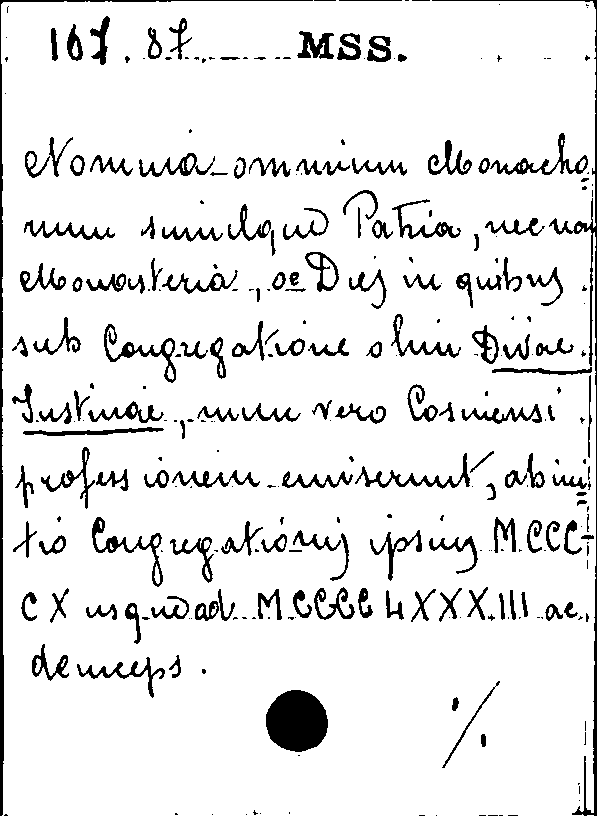 107.87. MSS.
Nomina omnium Monacho=
rum simulque Patria, nec non
Monasteria, ac Dies in quibus
sub Congregatione olim Divae
Iustinae, nunc vero Cosinensi
professionem emiserunt, ab ini=
tio Congregationis ipsius MCCC-
CX usque ad MCCCCLXXXIII ac
deinceps.
·/.